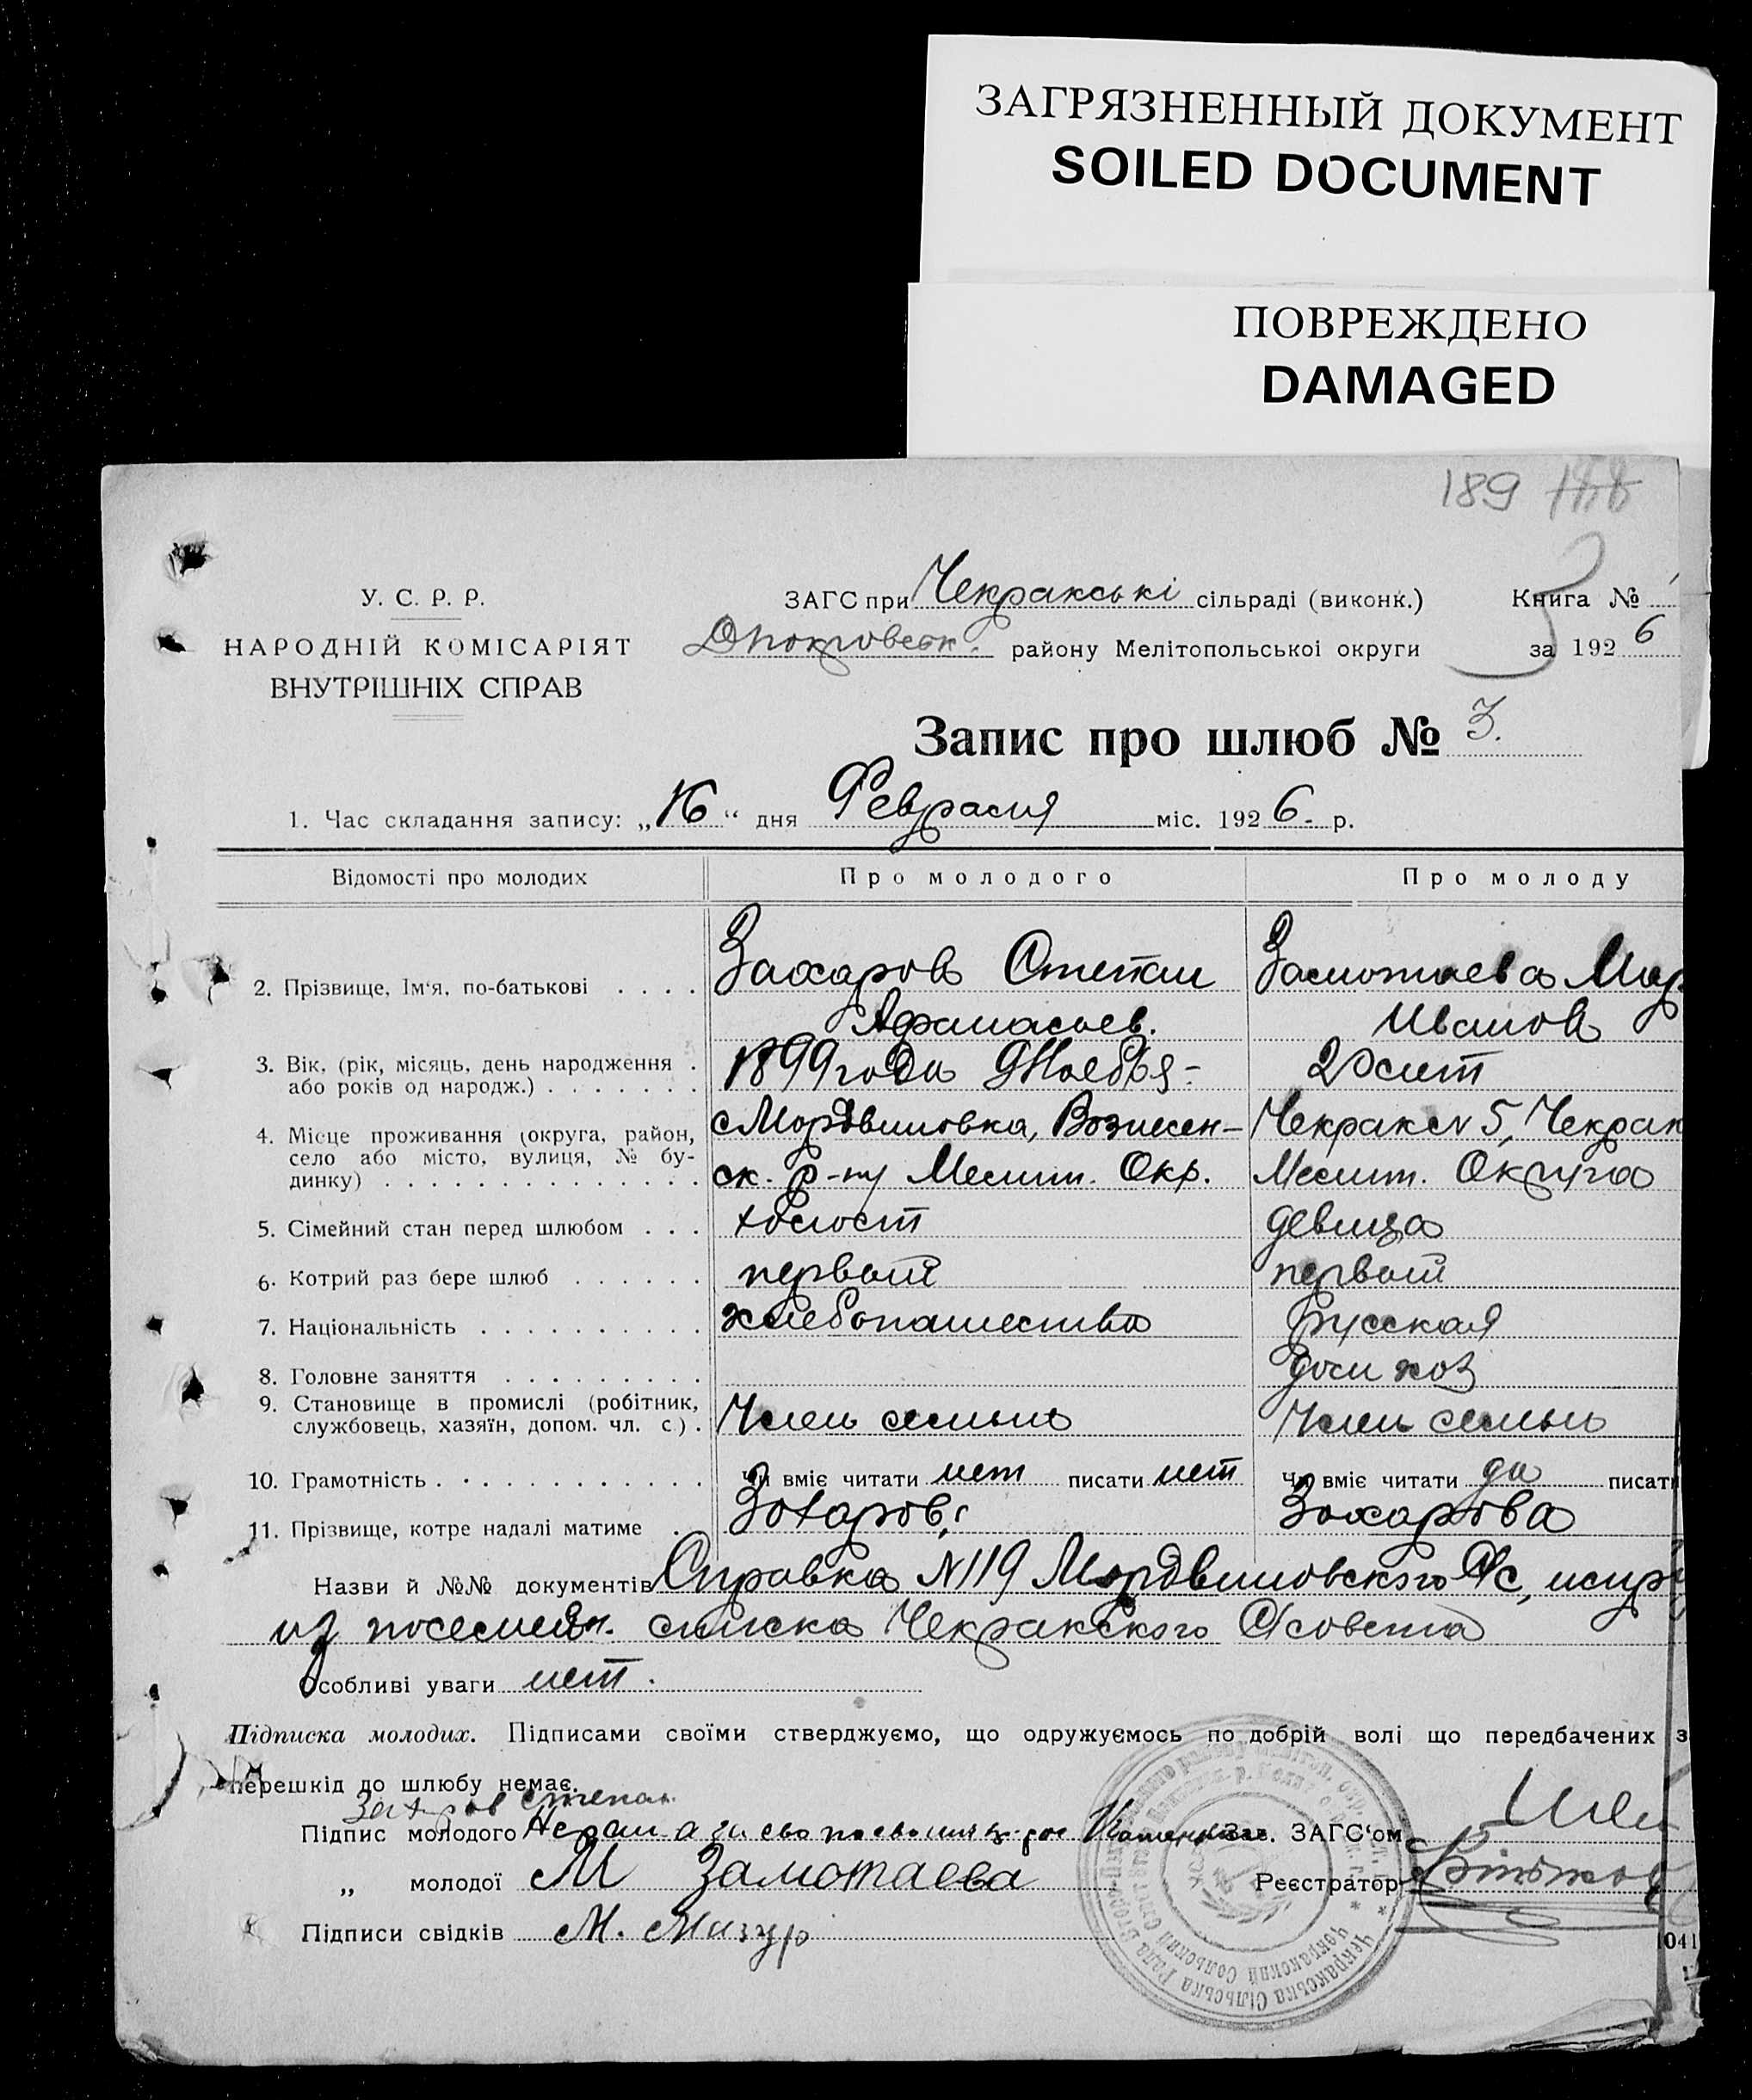 ЗАГРЯЗНЕННЫЙ ДОКУМЕНТ
SOILED DOCUMENT
ПОВРЕЖДЕНО
DAMAGED
189
У. С. Р. Р.
НАРОДНІЙ КОМІСАРІЯТ
ВНУТРІШНІХ СПРАВ
ЗАГС при Чекракські сільраді (виконк.) Книга №
району Мелітопольської округи за 1926
Запис про шлюб № 3.
1. Час складання запису: „16“ дня Февраля міс. 1926 - р.
Відомості про молодих Про молодого Про молоду
2. Прізвище, Ім'я, по-батькові . . . . Захаров Степан Замотаева Мар
Афанасьев. Иванов
3. Вік, (рік, місяць, день народження . 1899 года 9 Ноября - 20 лет
або років од народж.) . . . . . . .
4. Місце проживання (округа, район, с Мордвиновка, Вознесен- Чекрак N 5, Чекрак
село або місто, вулиця, № бу- ск. р-ну Мелит. Окр. Мелит. Округа
динку) . . . . . . . . . . . . . .
5. Сімейний стан перед шлюбом . . . холост девица
6. Котрий раз бере шлюб . . . . . . первый первый
7. Національність . . . . . . . . . . хлебопашество Русская
8. Головне заняття . . . . . . . . . дом хоз
9. Становище в промислі (робітник, Член семьи Член семьи
службовець, хазяїн, допом. чл. с.) .
10. Грамотність . . . . . . . . . . . чи вміє читати нет писати нет чи вміє читати да писати
11. Прізвище, котре надалі матиме . Захаров Захарова
Назви й №№ документів Справка N 119 Мордвиновского С/с,
из посемейн. списка Чекракского С/совета
Особливі уваги нет.
Підписка молодих. Підписами своїми стверджуємо, що одружуємось по добрій волі що передбачених з
перешкід до шлюбу немає.
Захаров Степан
Підпис молодого Зав. ЗАГС'ом
„ молодої М Замотаева Реєстратор
Підписи свідків М. Мазур
041
Чекракська Сільська Рада
Чекракский Сельский